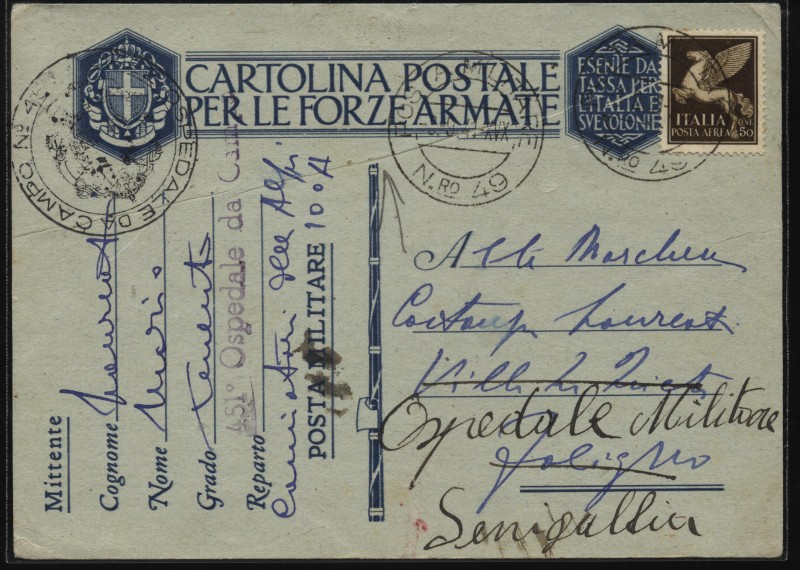 CARTOLINA POSTALE
PER LE FORZE ARMATE
ESENTE DA
TASSA PER
L'ITALIA E
SVE COLONIE
ITALIA
POSTA AEREA CENT. 50
OSPEDALE DA CAMPO No 451
POSTA MILITARE
N.RO 49
N.RO 49
Alla
Ospedale Militare
Foligno
Senigallia
Mittente
Cognome
Nome Mario
Grado Tenente
451° Ospedale da Cam
Reparto Cacciatori delle Alpi
POSTA MILITARE 100 A